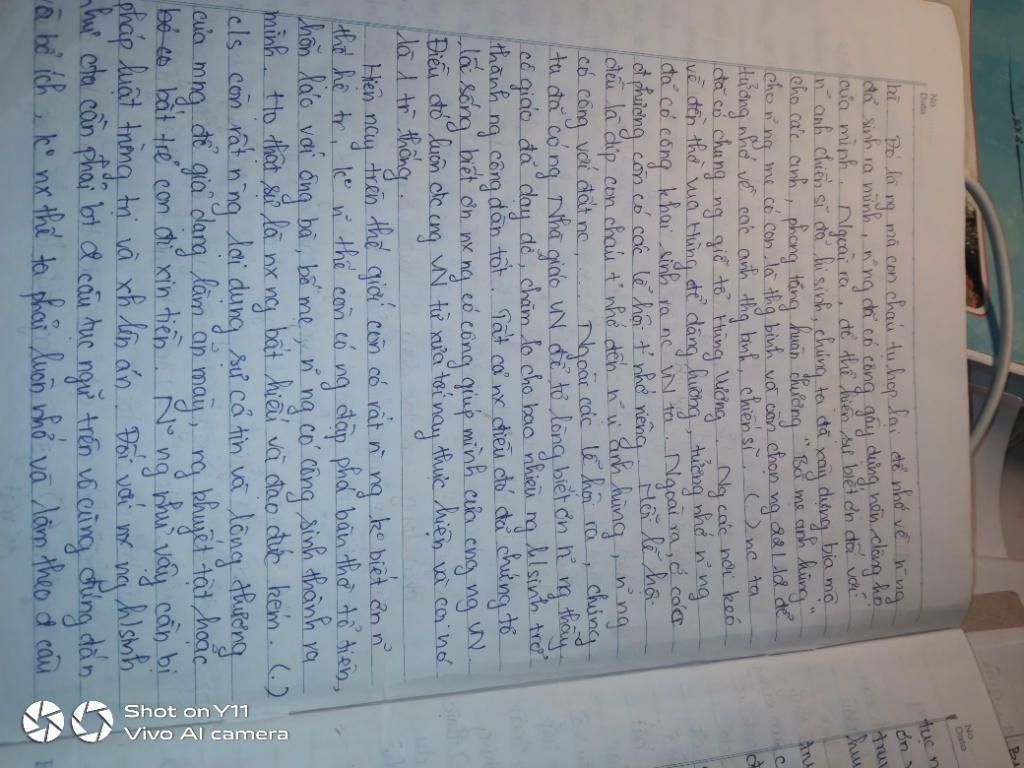 No.
Date
bì... Đó là ng mà con cháu tụ họp lại để nhớ về n~ ng
đã sinh ra mình, n~ ng đã có công gây dựng nên dòng họ
của mình. Ngoài ra, để thể hiện sự biết ơn đối với
n~ anh chiến sĩ đã hi sinh, chúng ta đã xây dựng bia mộ
cho các anh, phong tặng huân chương "Bố mẹ anh hùng"
cho n~ ng mẹ có con là thg binh và con chọn ng 22/12 để
tưởng nhớ về các anh thg binh, chiến sĩ. (.) nc ta
đã có chung ng giỗ tổ Hùng Vương. Ng các nơi kéo
về đền thờ vua Hùng để dâng hương, tưởng nhớ n~ ng
đã có công khai sinh ra nc VN ta. Ngoài ra, ở các
đ phương còn có các lễ hội t' nhớ riêng. Mỗi lễ hội
đều là dịp con cháu t' nhớ đến n~ vị anh hùng, n~ ng
có công với đất nc,... Ngoài các lễ hội ra, chúng
ta đã có ng Nhà giáo VN để tỏ lòng biết ơn n~ ng thầy
cô giáo đã dạy dỗ, chăm lo cho bao nhiêu ng h/sinh trở
thành ng công dân tốt. Tất cả nx điều đó đã chứng tỏ
lối sống biết ơn nx ng có công giúp mình của cng ng VN.
Điều đó luôn đc cng VN từ xưa tới nay thực hiện và coi nó
là 1 tr thống.
Hiện nay trên thế giới còn có rất n~ ng ko biết ơn n~
thế hệ tr, k° n~ thế còn có ng đập phá bàn thờ tổ tiên,
hỗn láo với ông bà, bố mẹ, n~ ng có công sinh thành ra
mình. Họ thật sự là nx ng bất hiếu và đạo đức kém. (.)
c/s còn rất n` ng lợi dụng sự cả tin và lòng thương
của mng để giả dạng làm ăn mày, ng khuyết tật hoặc
bắt trẻ con đi xin tiền. N~ ng như vậy cần bị
pháp luật trừng trị và xh lên án. Đối với nx ng h/sinh
như cta cần phải bt đc câu tục ngữ trên vô cùng đúng đắn
và bổ ích, k° nx thế ta phải luôn nhớ và làm theo đc câu
Shot on Y11
Vivo AI camera
No.
Date
tục n